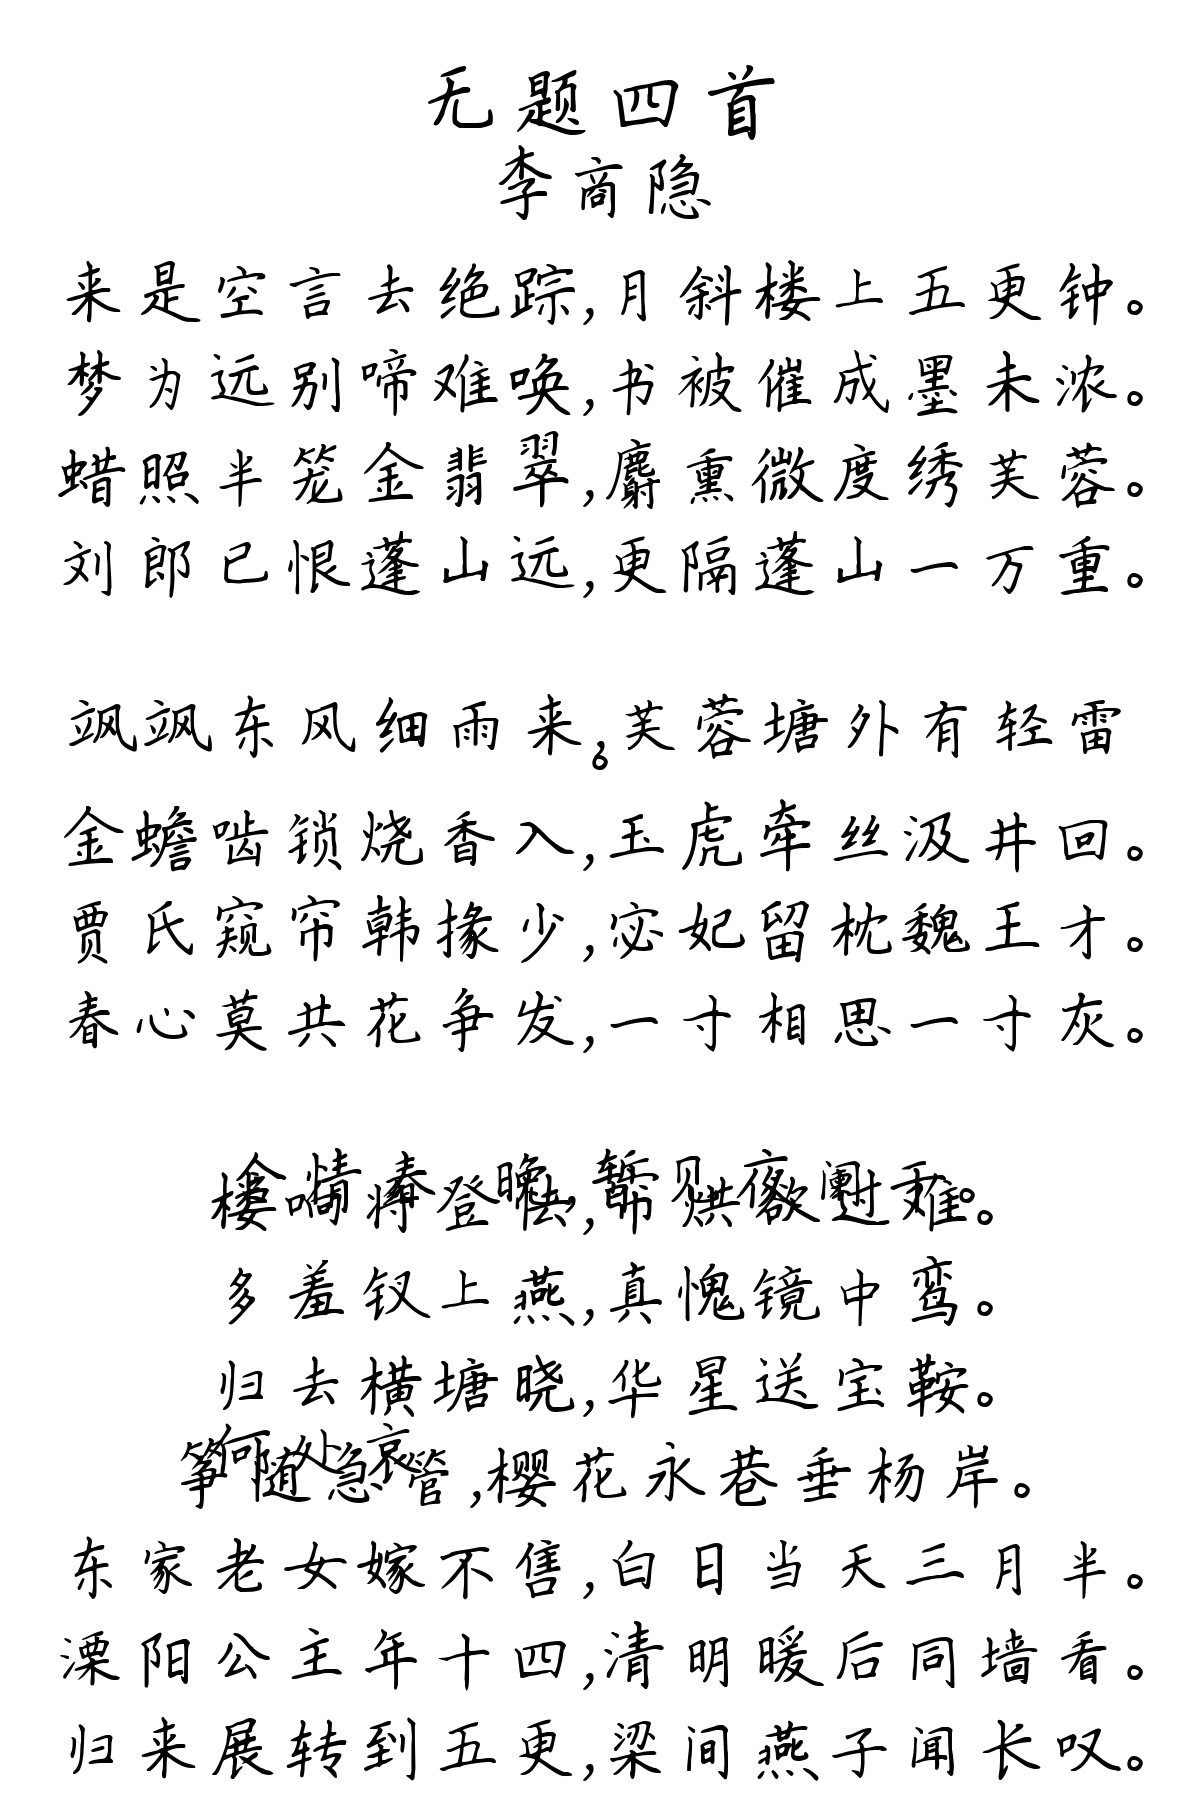 无题四首
李商隐
来是空言去绝踪,月斜楼上五更钟。
梦为远别啼难唤,书被催成墨未浓。
蜡照半笼金翡翠,麝熏微度绣芙蓉。
刘郎已恨蓬山远,更隔蓬山一万重。
飒飒东风细雨来,芙蓉塘外有轻雷
。
金蟾啮锁烧香入,玉虎牵丝汲井回。
贾氏窥帘韩掾少,宓妃留枕魏王才。
春心莫共花争发,一寸相思一寸灰。
含情春晚,暂见夜阑干。
楼响将登怯,帘烘欲过难。
多羞钗上燕,真愧镜中鸾。
归去横塘晓,华星送宝鞍。
何处哀
筝随急管,樱花永巷垂杨岸。
东家老女嫁不售,白日当天三月半。
溧阳公主年十四,清明暖后同墙看。
归来展转到五更,梁间燕子闻长叹。